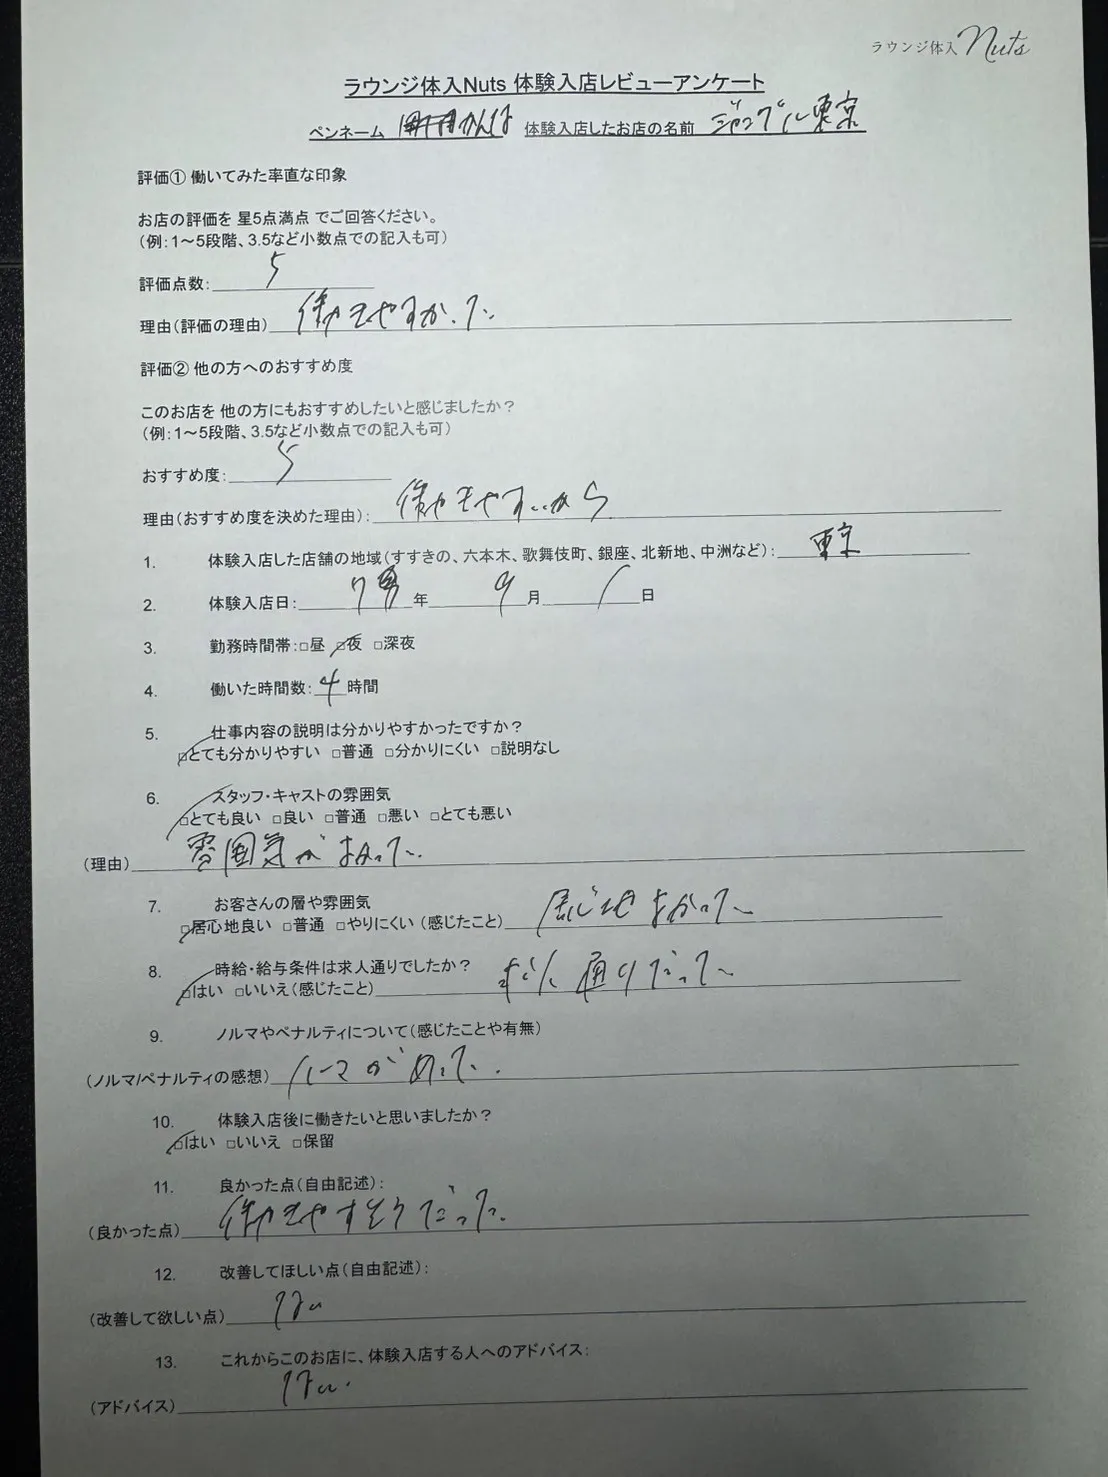 ラウンジ体入 Nuts
ラウンジ体入Nuts 体験入店レビューアンケート
ペンネーム かんな 体験入店したお店の名前 ジャングル東京
評価① 働いてみた率直な印象
お店の評価を 星5点満点 でご回答ください。
(例:1〜5段階、3.5など小数点での記入も可)
評価点数: 5
理由(評価の理由) 働きやすかった
評価② 他の方へのおすすめ度
このお店を 他の方にもおすすめしたいと感じましたか?
(例:1〜5段階、3.5など小数点での記入も可)
おすすめ度: 5
理由(おすすめ度を決めた理由): 働きやすいから
1. 体験入店した店舗の地域(すすきの、六本木、歌舞伎町、銀座、北新地、中洲など): 東京
2. 体験入店日: 7 年 9 月 1 日
3. 勤務時間帯:□昼 □夜 □深夜
4. 働いた時間数: 4 時間
5. 仕事内容の説明は分かりやすかったですか?
□とても分かりやすい □普通 □分かりにくい □説明なし
6. スタッフ・キャストの雰囲気
□とても良い □良い □普通 □悪い □とても悪い
(理由) 雰囲気がよかった。
7. お客さんの層や雰囲気
□居心地良い □普通 □やりにくい (感じたこと) 居心地よかった
8. 時給・給与条件は求人通りでしたか?
□はい □いいえ(感じたこと) 求人通りだった
9. ノルマやペナルティについて(感じたことや有無)
(ノルマ/ペナルティの感想) ノルマがあった。
10. 体験入店後に働きたいと思いましたか?
□はい □いいえ □保留
11. 良かった点(自由記述):
(良かった点) 働きやすそうだった。
12. 改善してほしい点(自由記述):
(改善して欲しい点) ない
13. これからこのお店に、体験入店する人へのアドバイス:
(アドバイス) ない.